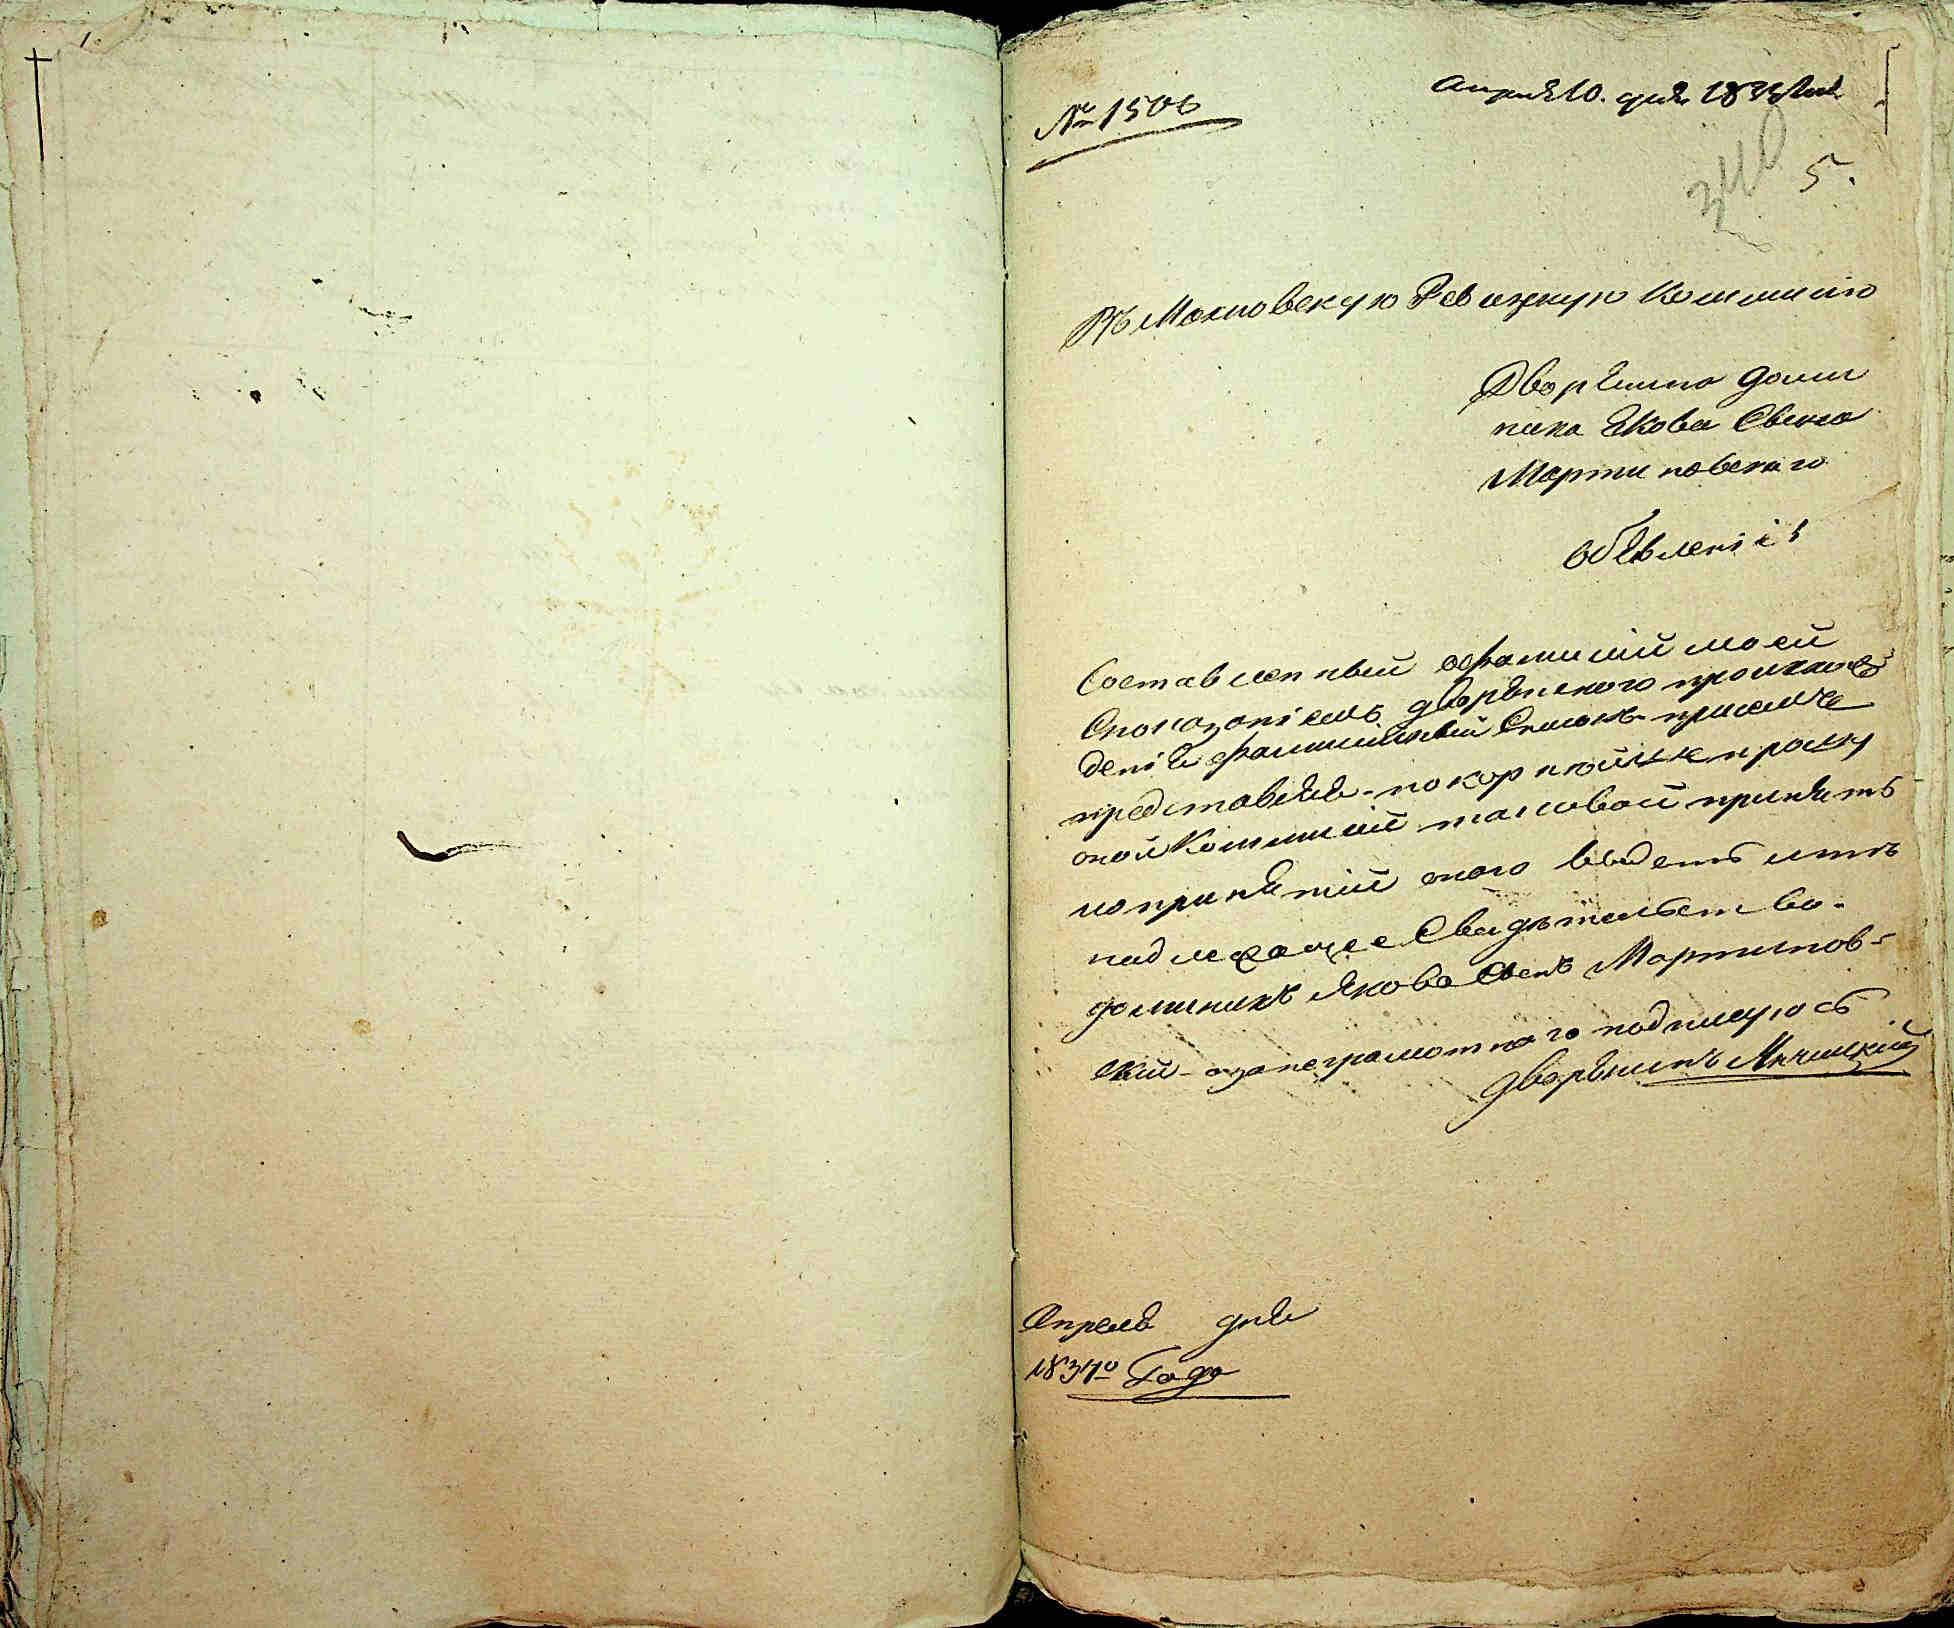 № 1506
Апреля 10. дня 1834
340
5.
Въ Махновскую Ревизкую Коммисию
Дворянина Доми
ника Якова Сына
Мартиновскаго
Обявленіе
Составленный о фамиліи моей
Споказаніемъ дворянскаго происхож
деніи фамилийный Списокъ присемъ
представляя - покорнѣйше прошу
оной Коммисіи таковой принять
попринятіи оного выдать мнѣ
надлежащее Свидѣтельство.
Доминикъ Якова Сынъ Мартинов-
скій - а за неграмотнаго подписуюсь
дворянинъ
Апреля дня
1834го Года